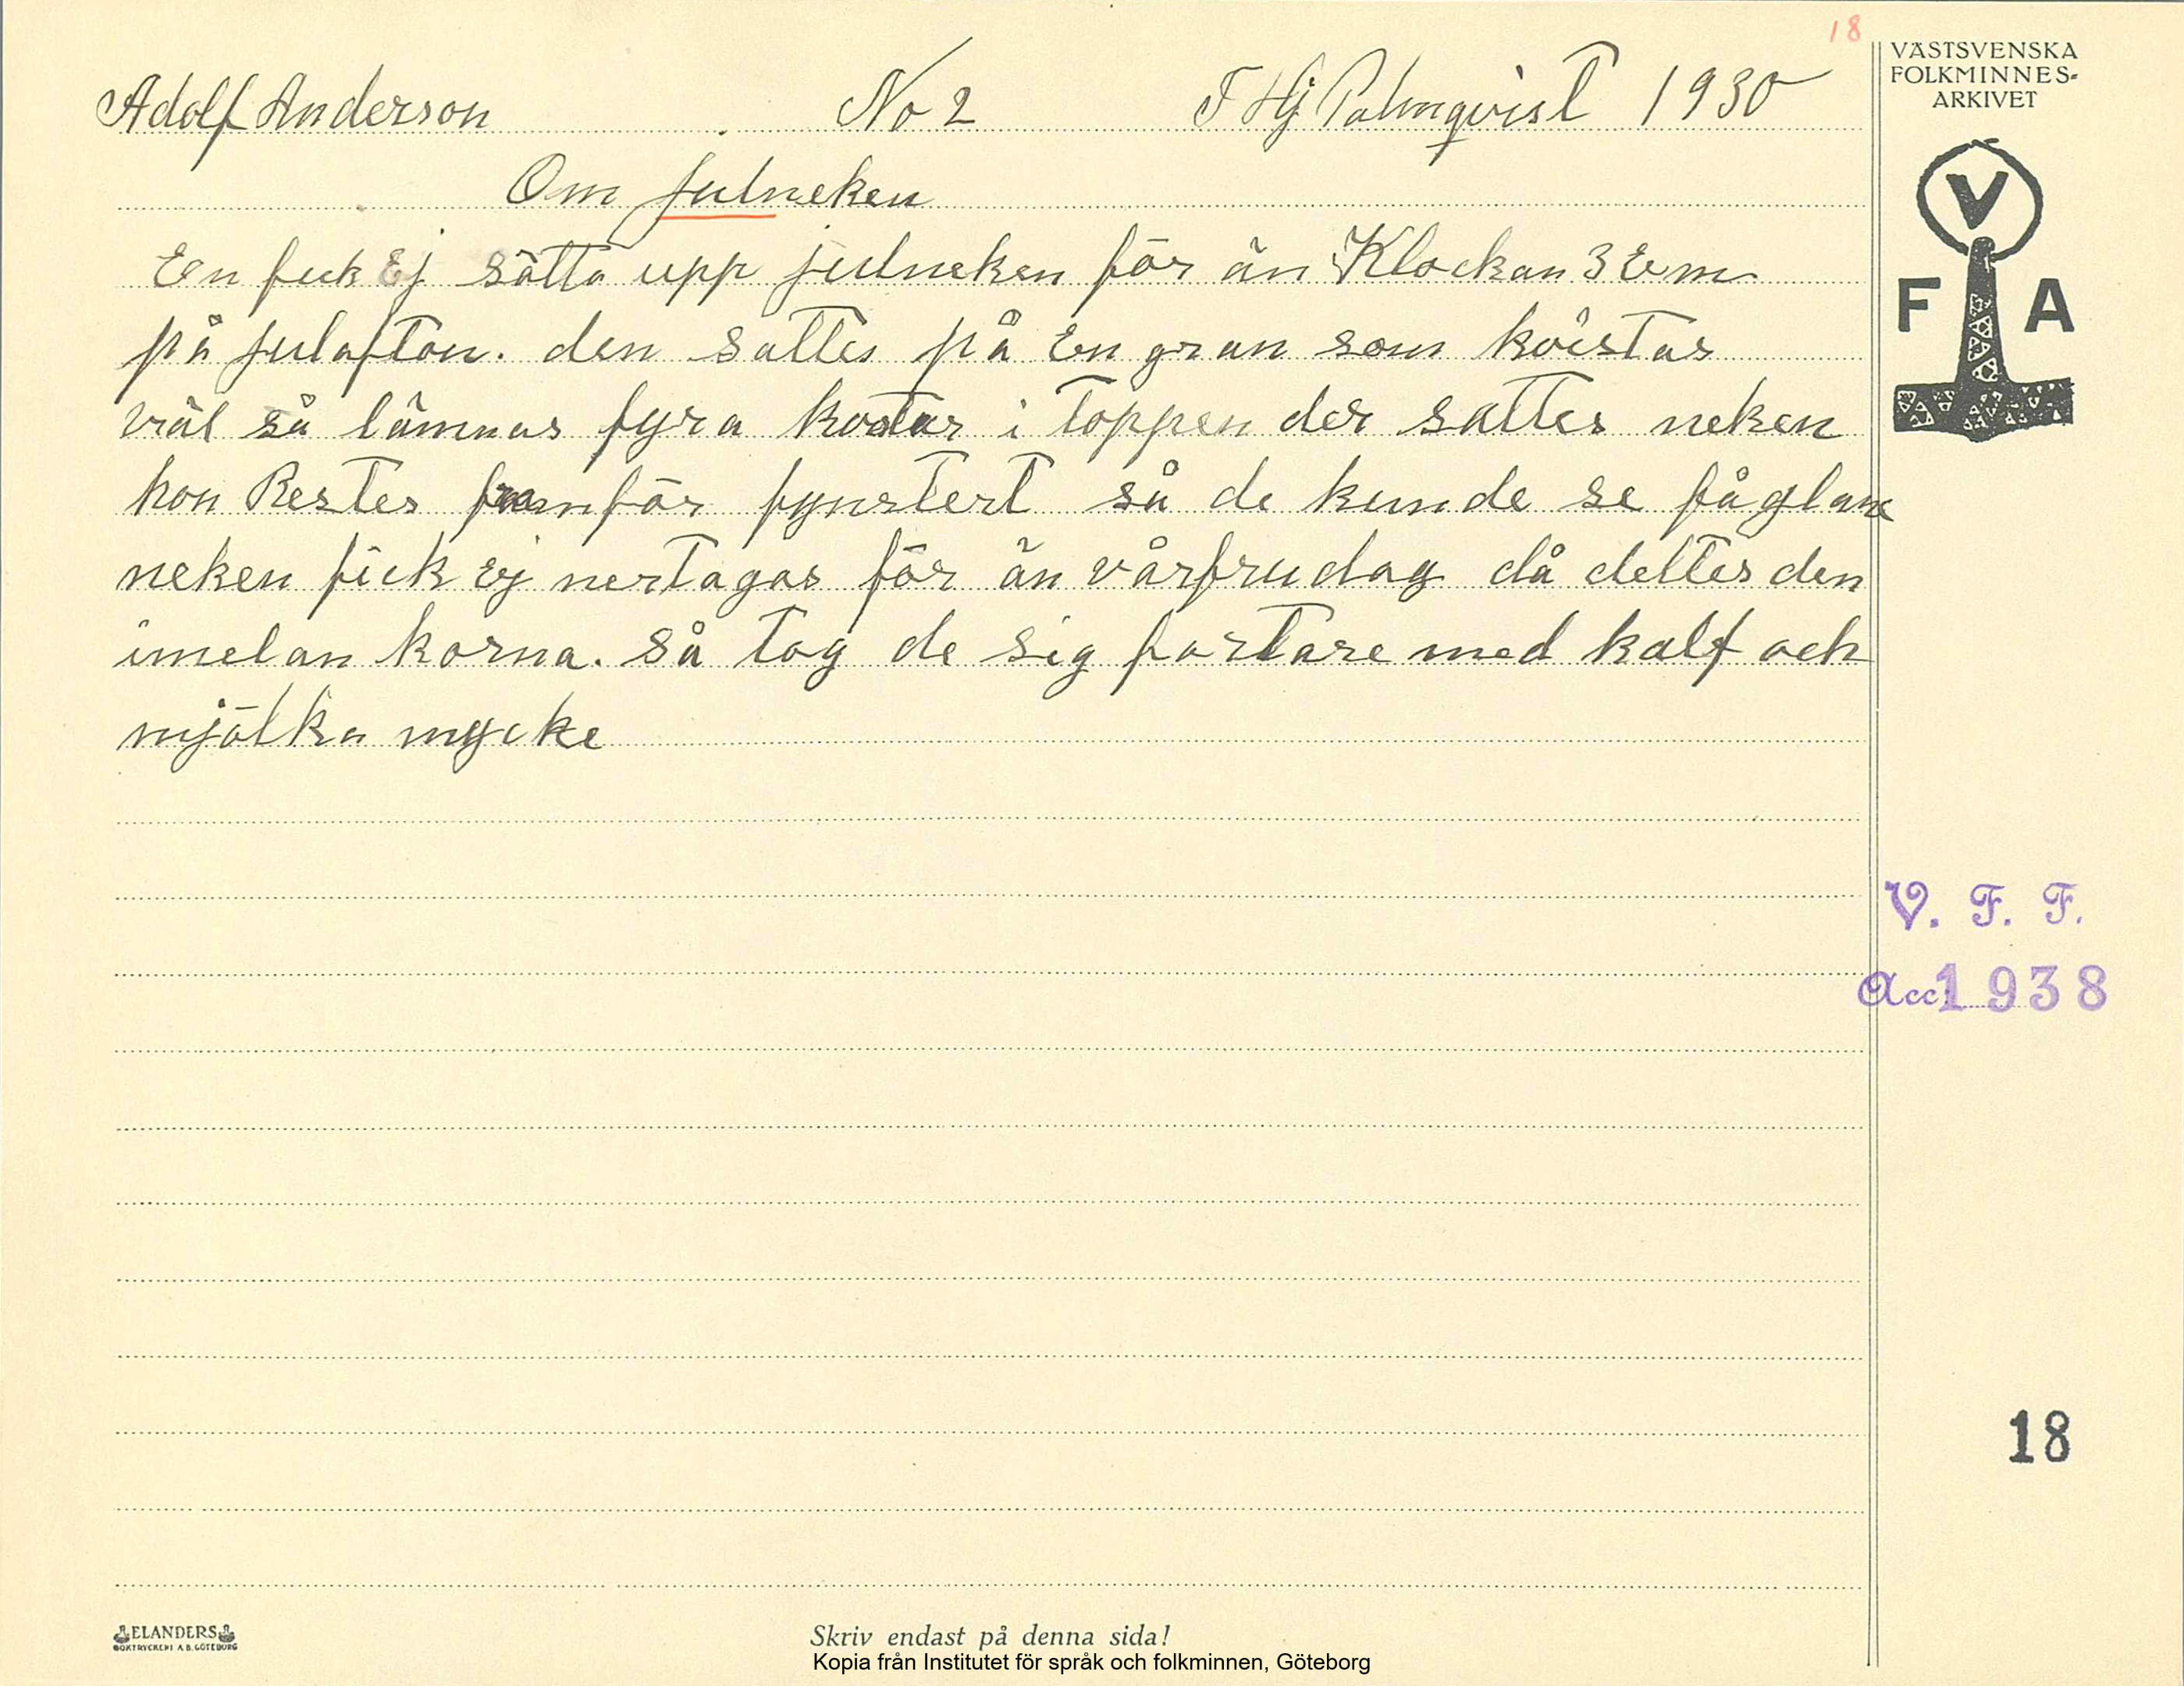 18
Adolf Anderson No 2 F Hj Palmqvist 1930
Om Julneken
En fick Ej sätta upp julneken för än Klockan 3 Em
på julafton. den sattes på En gran som kvistas
väl så lämnas fyra kvstar i toppen der sattes neken
hon Restes framför fynstert så de kunde se fåglane
neken fick Ej nertagas för än vårfrudag då deltes den
imelan korna. så tog de sig fortare med kalf och
mjölka mycke
VÄSTSVENSKA
FOLKMINNES-
ARKIVET
V
F A
V. F. F.
Acc 1938
18
ELANDERS
BOKTRYCKERI A.B. GÖTEBORG
Skriv endast på denna sida!
Kopia från Institutet för språk och folkminnen, Göteborg